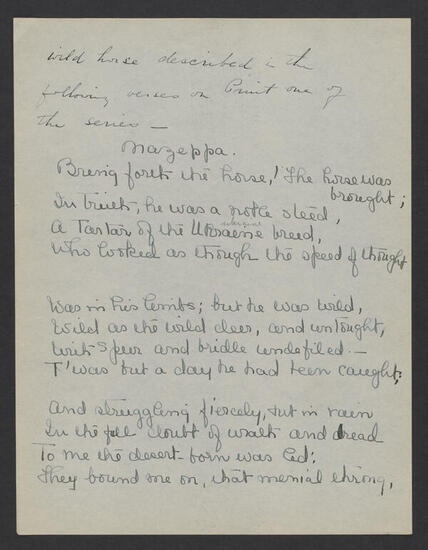 wild horse described in the
following verses on Print one of
the series —
Mazeppa.
Bring forth the horse,! The horse was
brought;
In truth, he was a noble steed,
A Tartar of the Ukraine breed,
Who looked as though the speed of thought
Was in his limbs; but he was wild,
Wild as the wild deer, and untought,
With spur and bridle undefiled. —
T'was but a day he had been caught;
And struggling fiercely, but in vain
In the full doubt of wrath and dread
To me the desert-born was led:
They bound me on, that menial throng,